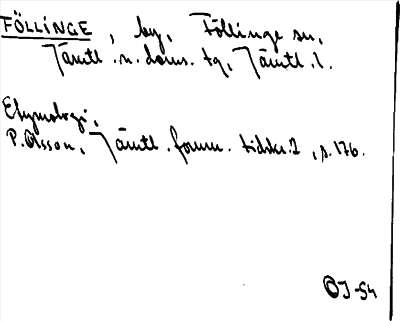 FÖLLINGE, by, Föllinge sn,
Jämtl. n. doms. tg, Jämtl. l.
Etymologi,
P. Olsson, Jämtl. fornm. tidskr. 2, s. 176.
OJ-54